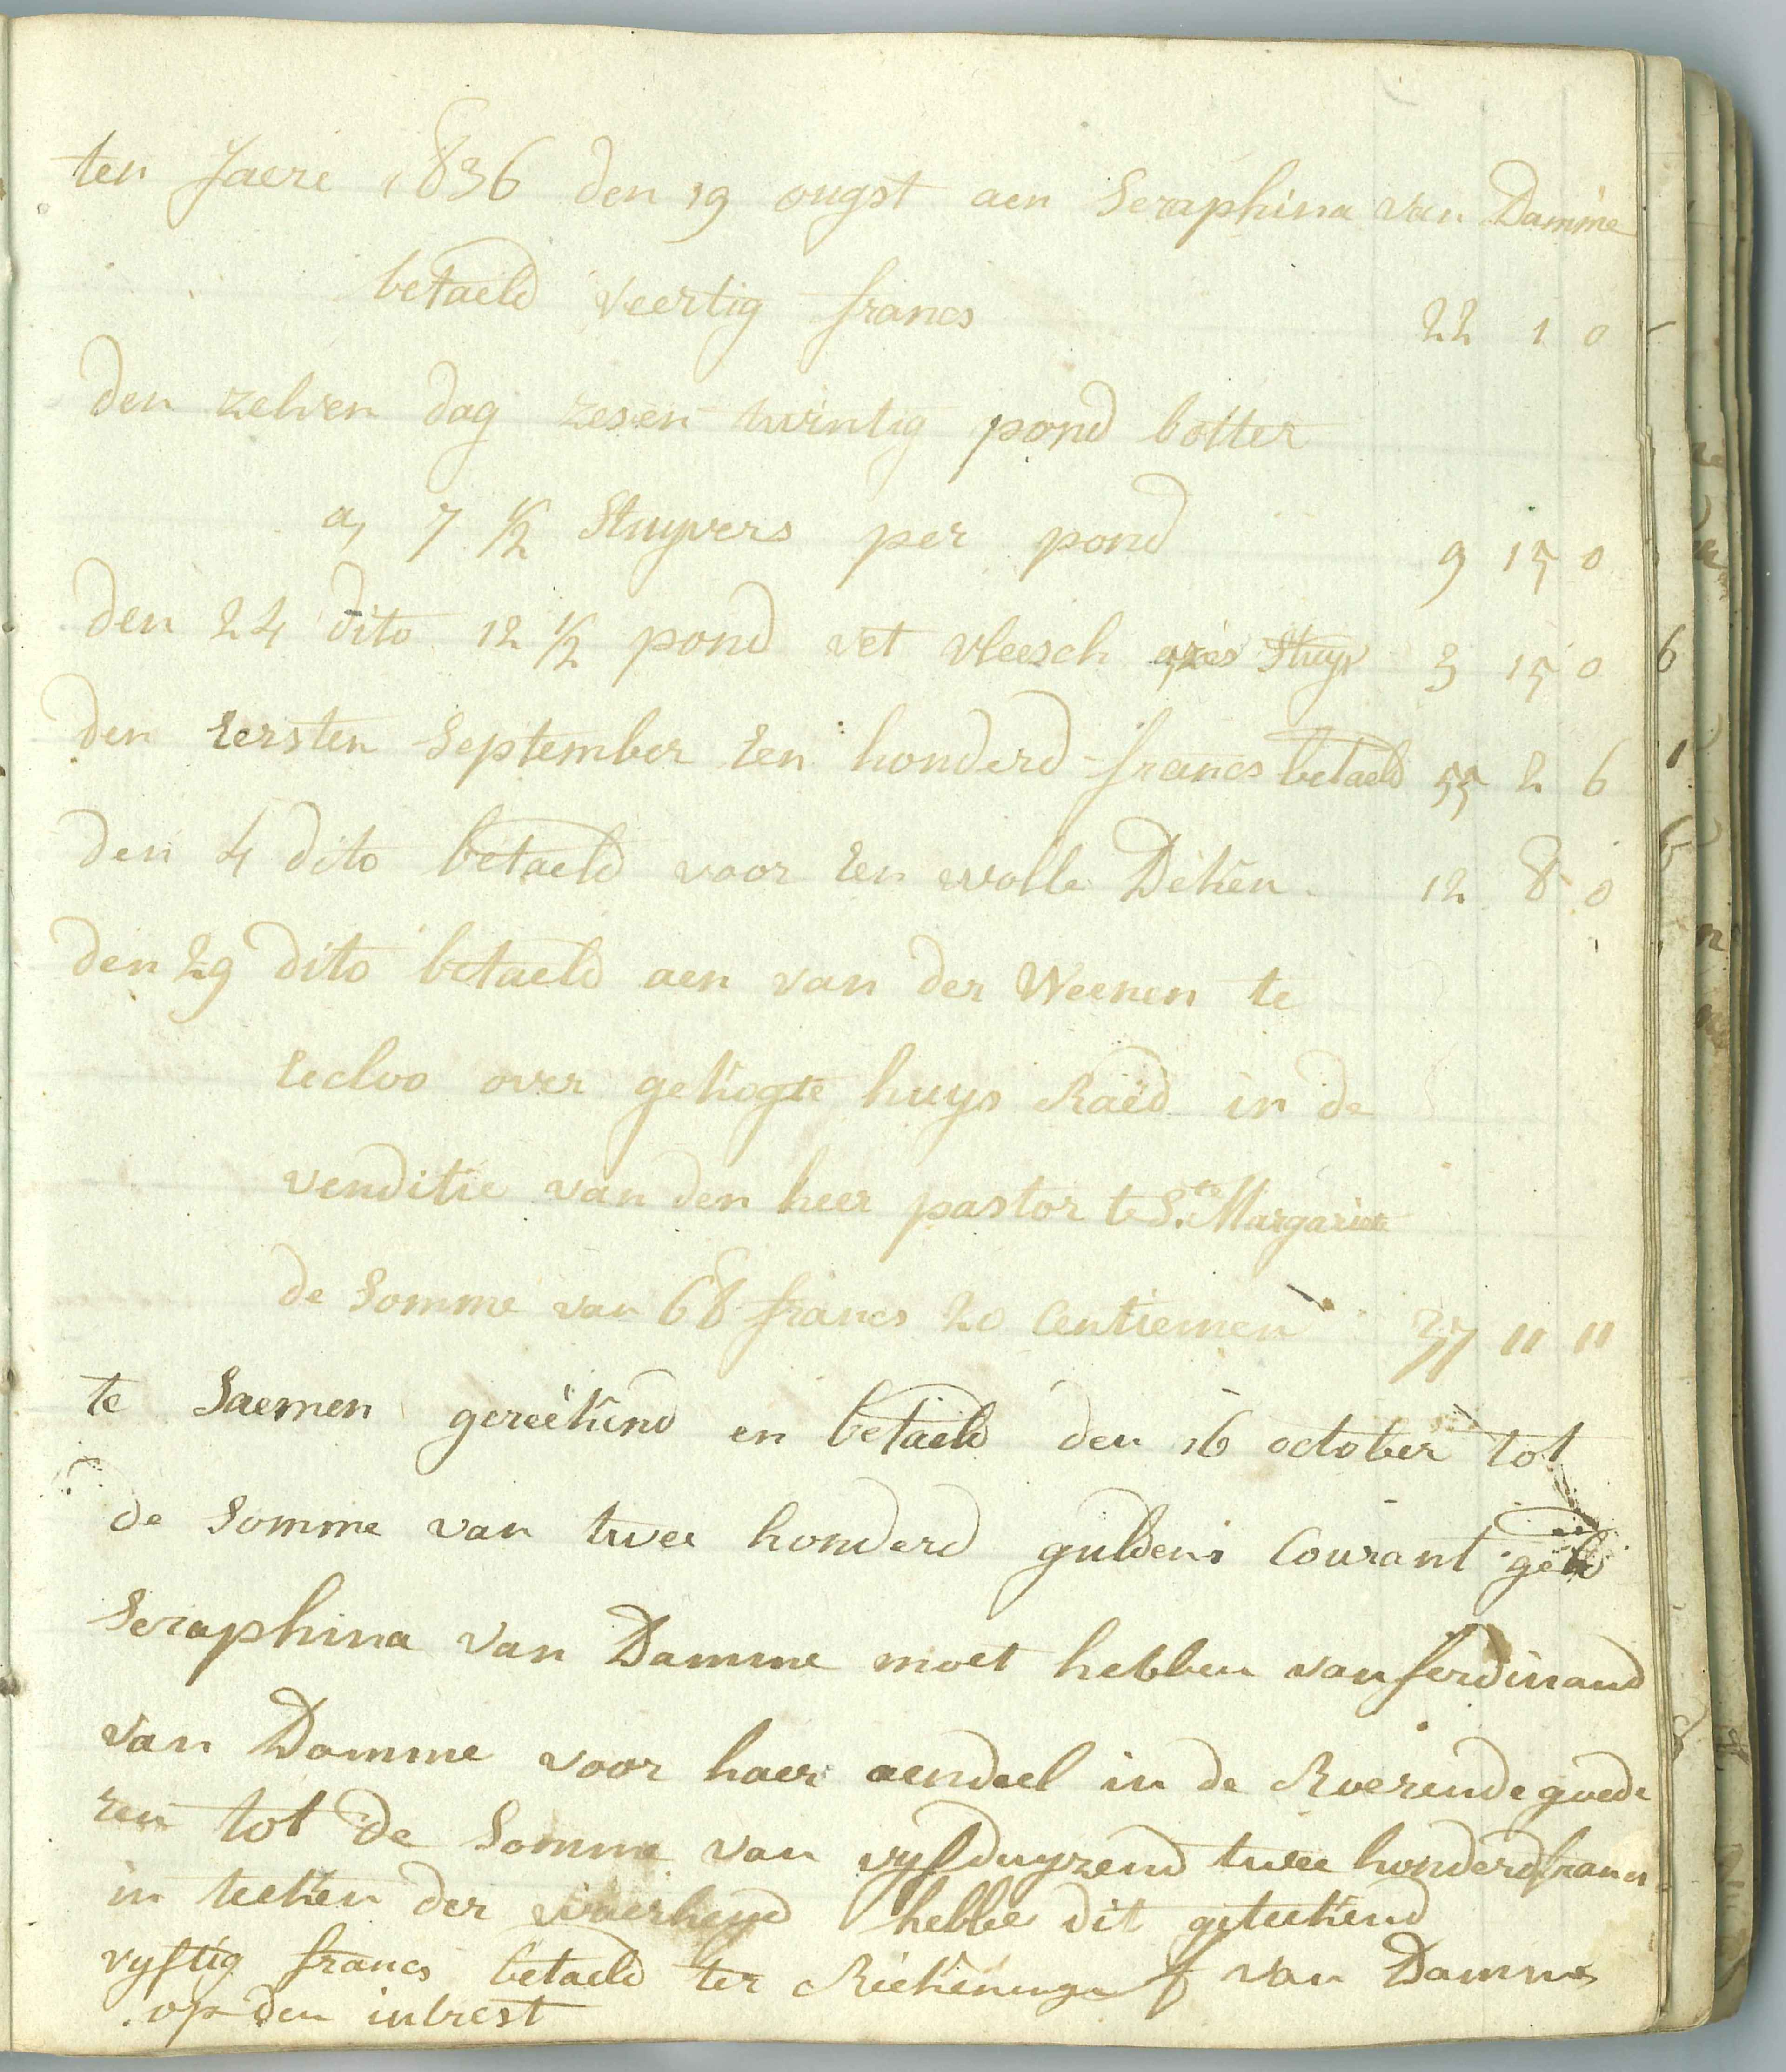 ten Jaere 1836 den 19 ougst aen Seraphina van Damme
betaeld veertig francs 22 1 0
den zelven dag zesen twintig pond botter
a, 7 1/2 Stuyvers per pond 9 15 0
den 24 dito 12 1/2 pond vet vleesch a zes Stuyv 3 15 0
den Eersten September Een honderd francs betaeld 55 2 6
den 4 dito betaeld voor Een wolle Deken 12 8 0
den 29 dito betaeld aen van der Weenen te
Eecloo over gekogte huys Raed in de
venditie van den heer pastor te S.te Margariete
de Somme van 68 francs 20 Centiemen 37 11 11
te Saemen gereekend en betaeld den 16 october tot
de Somme van twee honderd guldens Courant geld
Seraphina van Damme moet hebben van ferdinand
van Damme voor haer aendeel in de Roerende goede
ren tot de Somme van vyfduyzend twee honderd francs
in teeken der waerheyd hebbe dit geteekend
vyftig francs betaeld ter Rekeninge f van Damme
op den intrest